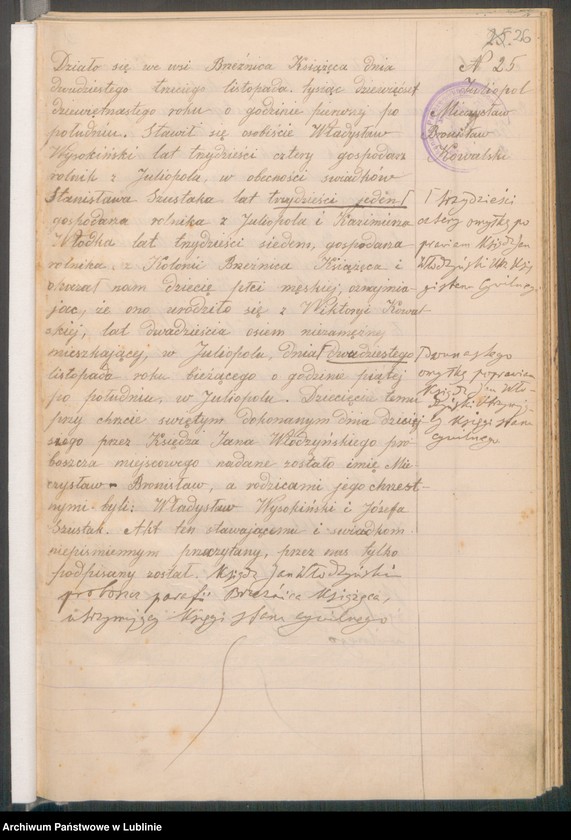 25. 26
Działo się we wsi Brzeźnica Książęca dnia
dwudziestego trzeciego listopada, tysiąc dziewięćset
dziewiętnastego roku o godzinie pierwszej po
południu. Stawił się osobiście Władysław
Wysokiński lat trzydzieści cztery gospodarz
rolnik z Juliopola, w obecności świadków
Stanisława Szustaka lat trzydzieści jeden
gospodarza rolnika z Juliopola i Kazimierza
Włodka lat trzydzieści siedem, gospodarza
rolnika z Kolonii Brzeźnica Książęca i
okazał nam dziecię płci męskiej, oznajmia
jąc, że ono urodziło się z Wiktoryi Kowal
skiej, lat dwadzieścia osiem niezamężnej
mieszkającej, w Juliopolu, dnia dwudziestego
listopada roku bieżącego o godzinie piątej
po południu, w Juliopolu. Dziecięciu temu
przy chrzcie świętym dokonanym dnia dzisiej
szego przez Księdza Jana Włodzyńskiego pro
boszcza miejscowego nadane zostało imię Mie
czysław - Bronisław, a rodzicami jego chrzest-
nymi byli: Władysław Wysokiński i Józefa
Szustak. Akt ten stawającemu i świadkom
niepiśmiennym przeczytany, przez nas tylko
podpisany został. Ksiądz Jan Włodzyński
proboszcz parafii Brzeźnica Książęca,
utrzymujący Księgi stanu cywilnego
N 25
Juliopol
Mieczysław
Bronisław
Kowalski
trzydzieści
cztery omyłkę po
prawiam Ksiądz Jan
Włodzyński Utr. Księ
gi stanu cywilnego
Dwunastego
omyłkę poprawiam
Ksiądz Jan Wło-
dzyński Utrzymują
cy Księgi stanu
cywilnego
Archiwum Państwowe w Lublinie